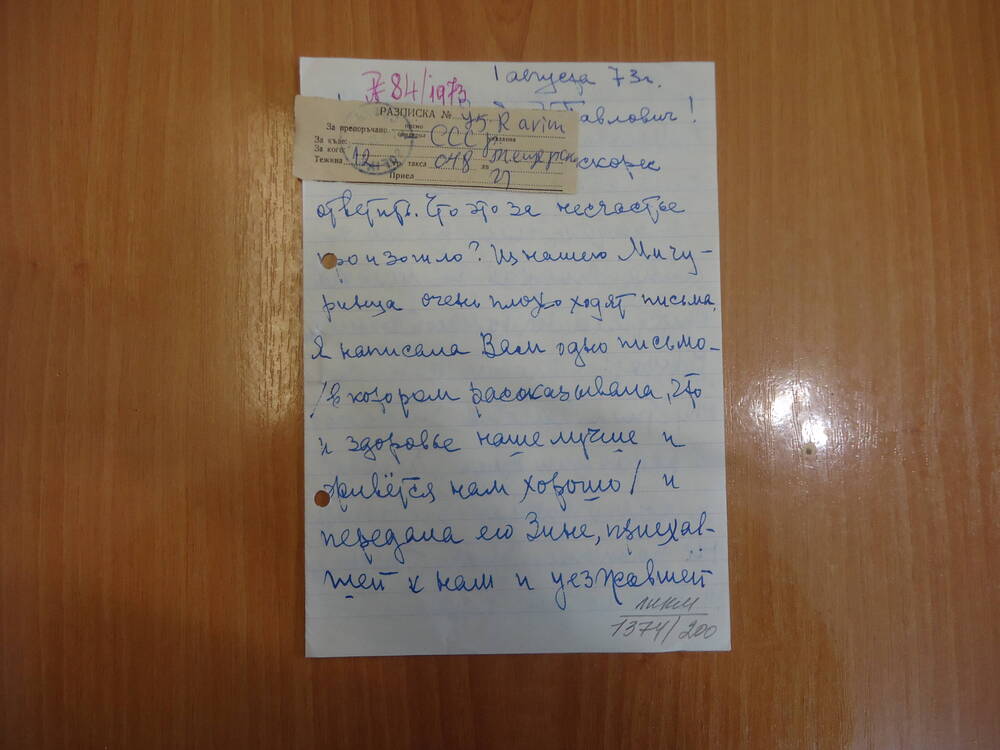 1 августа 73 г.
84/1973
Павлович!
РАЗПИСКА № 45 R avion
За препоръчано писмо
За къде: СССР
За кого:
Тежина 12 гр. такса 048 лв
Приел
скорее
ответить. Что это за несчастье
произошло? Из нашего Мичу-
ринца очень плохо ходят письма.
Я написала Вам одно письмо –
/в котором рассказывала, что
и здоровье наше лучше и
живётся нам хорошо/ и
передала его Зине, приехав-
шей к нам и уезжавшей
ЛИКМ
1374/200